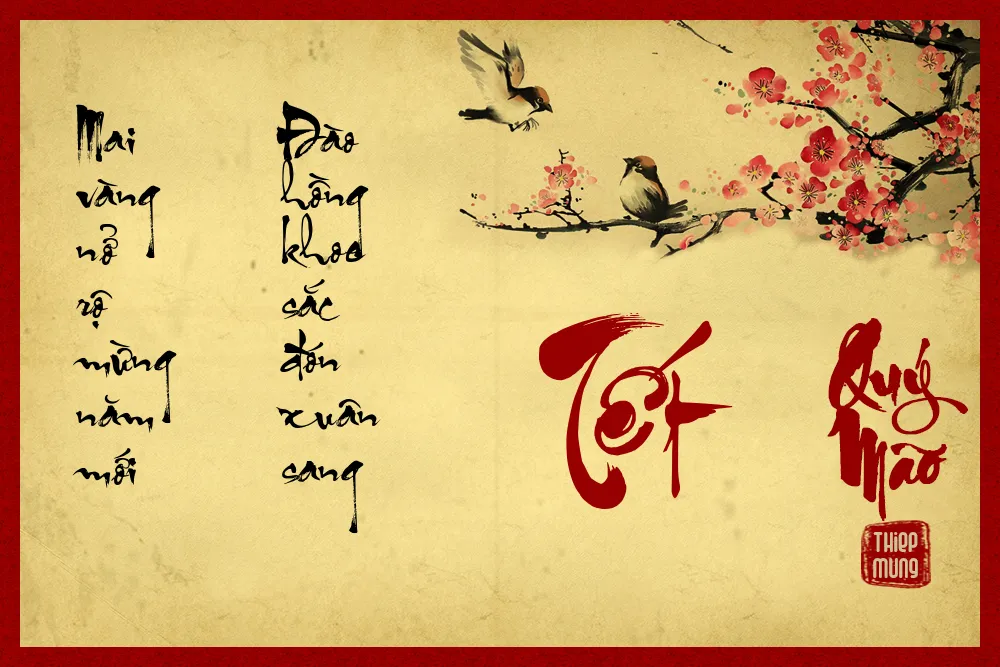 Mai
vàng
nở
rộ
mừng
năm
mới
Đào
hồng
khoe
sắc
đón
xuân
sang
Tết
Quý
Mão
THiệP
MừNg